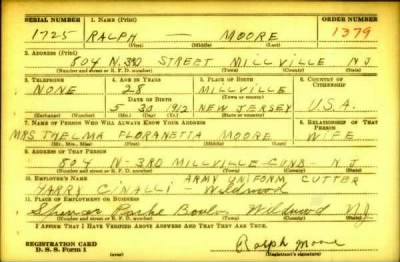 SERIAL NUMBER 1. NAME (Print) ORDER NUMBER
1725 RALPH — MOORE 1379
(First) (Middle) (Last)
2. ADDRESS (Print)
804 N. 3RD STREET MILLVILLE N J
(Number and street or R. F. D. number) (Town) (County) (State)
3. TELEPHONE 4. AGE IN YEARS 5. PLACE OF BIRTH 6. COUNTRY OF CITIZENSHIP
NONE 28 MILLVILLE
DATE OF BIRTH (Town or county)
5 30 1912 NEW JERSEY U.S.A.
(Exchange) (Number) (Mo.) (Day) (Yr.) (State or country)
7. NAME OF PERSON WHO WILL ALWAYS KNOW YOUR ADDRESS 8. RELATIONSHIP OF THAT PERSON
MRS THELMA FLORANETTA MOORE WIFE
(Mr., Mrs., Miss) (First) (Middle) (Last)
9. ADDRESS OF THAT PERSON
804 N-3RD MILLVILLE-CUMB- N J
(Number and street or R. F. D. number) (Town) (County) (State)
10. EMPLOYER'S NAME ARMY UNIFORM CUTTER
HARRY CINALLI - Wildwood
11. PLACE OF EMPLOYMENT OR BUSINESS
Wildwood N.J.
(Number and street or R. F. D. number) (Town) (County) (State)
I AFFIRM THAT I HAVE VERIFIED ABOVE ANSWERS AND THAT THEY ARE TRUE.
REGISTRATION CARD
D. S. S. Form 1 (over) Ralph Moore
(Registrant's signature)